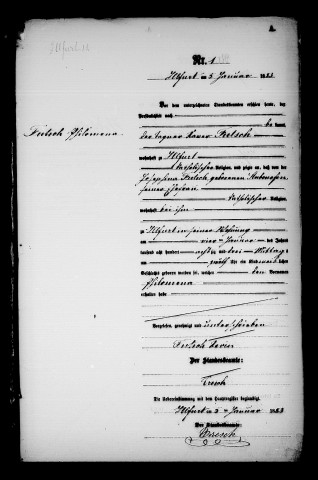 Nr. 1
Illfurt am 5 Januar 1883.
Vor dem unterzeichneten Standesbeamten erschien heute, der
Persönlichkeit nach
be kannt,
der Xaver Fretsch
Fretsch Philomena
wohnhaft zu Illfurt
katholischer Religion, und zeigte an, daß von der
Josephina Fretsch geborenen
seiner Ehefrau
katholischer Religion,
wohnhaft bei ihm
zu Illfurt in seiner Wohnung
am vier Januar des Jahres
tausend acht hundert achtzig und drei Mittags
um zwölf Uhr ein Kind weiblichen
Geschlechts geboren worden sei, welches den Vornamen
Philomena
erhalten habe
Vorgelesen, genehmigt und unterschrieben
Fretsch
Der Standesbeamte:
Tresch
Die Uebereinstimmung mit dem Hauptregister beglaubigt
Illfurt am 5 Januar 1883
Der Standesbeamte:
Tresch